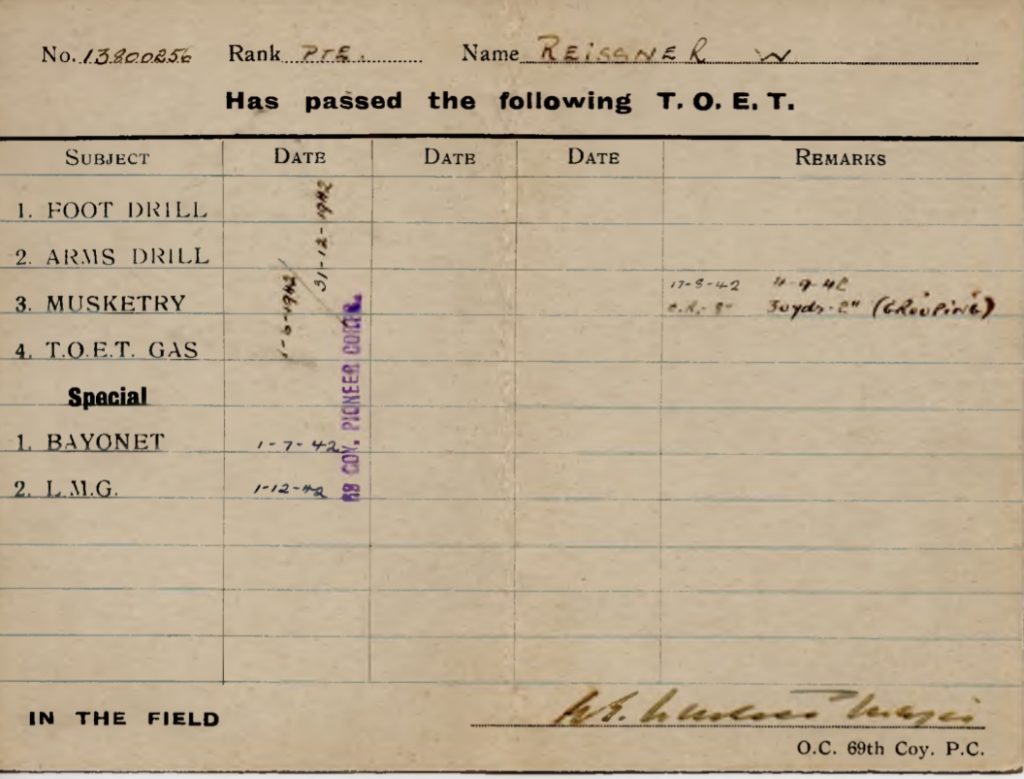 No. 13800256 Rank PTE. Name REISSNER W
Has passed the following T. O. E. T.
SUBJECT DATE DATE DATE REMARKS
1. FOOT DRILL
31-12-1942
2. ARMS DRILL
17-8-42 4-9-42
3. MUSKETRY 30yds-2" (GROUPING)
4. T.O.E.T. GAS
Special
1. BAYONET 1-7-42
69 COY. PIONEER CORPS.
2. L.M.G. 1-12-42
IN THE FIELD
O.C. 69th Coy. P.C.